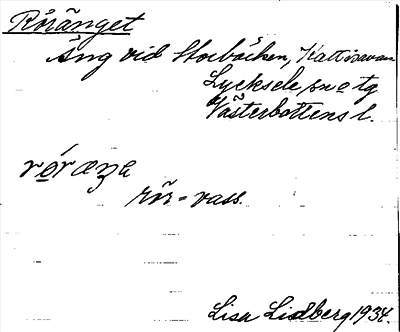 Röränget
Äng vid Storbäcken, Kattisavan
Lycksele sn o tg
Västerbottens l.
röräŋe
rör = vass.
Lisa Lidberg 1934.